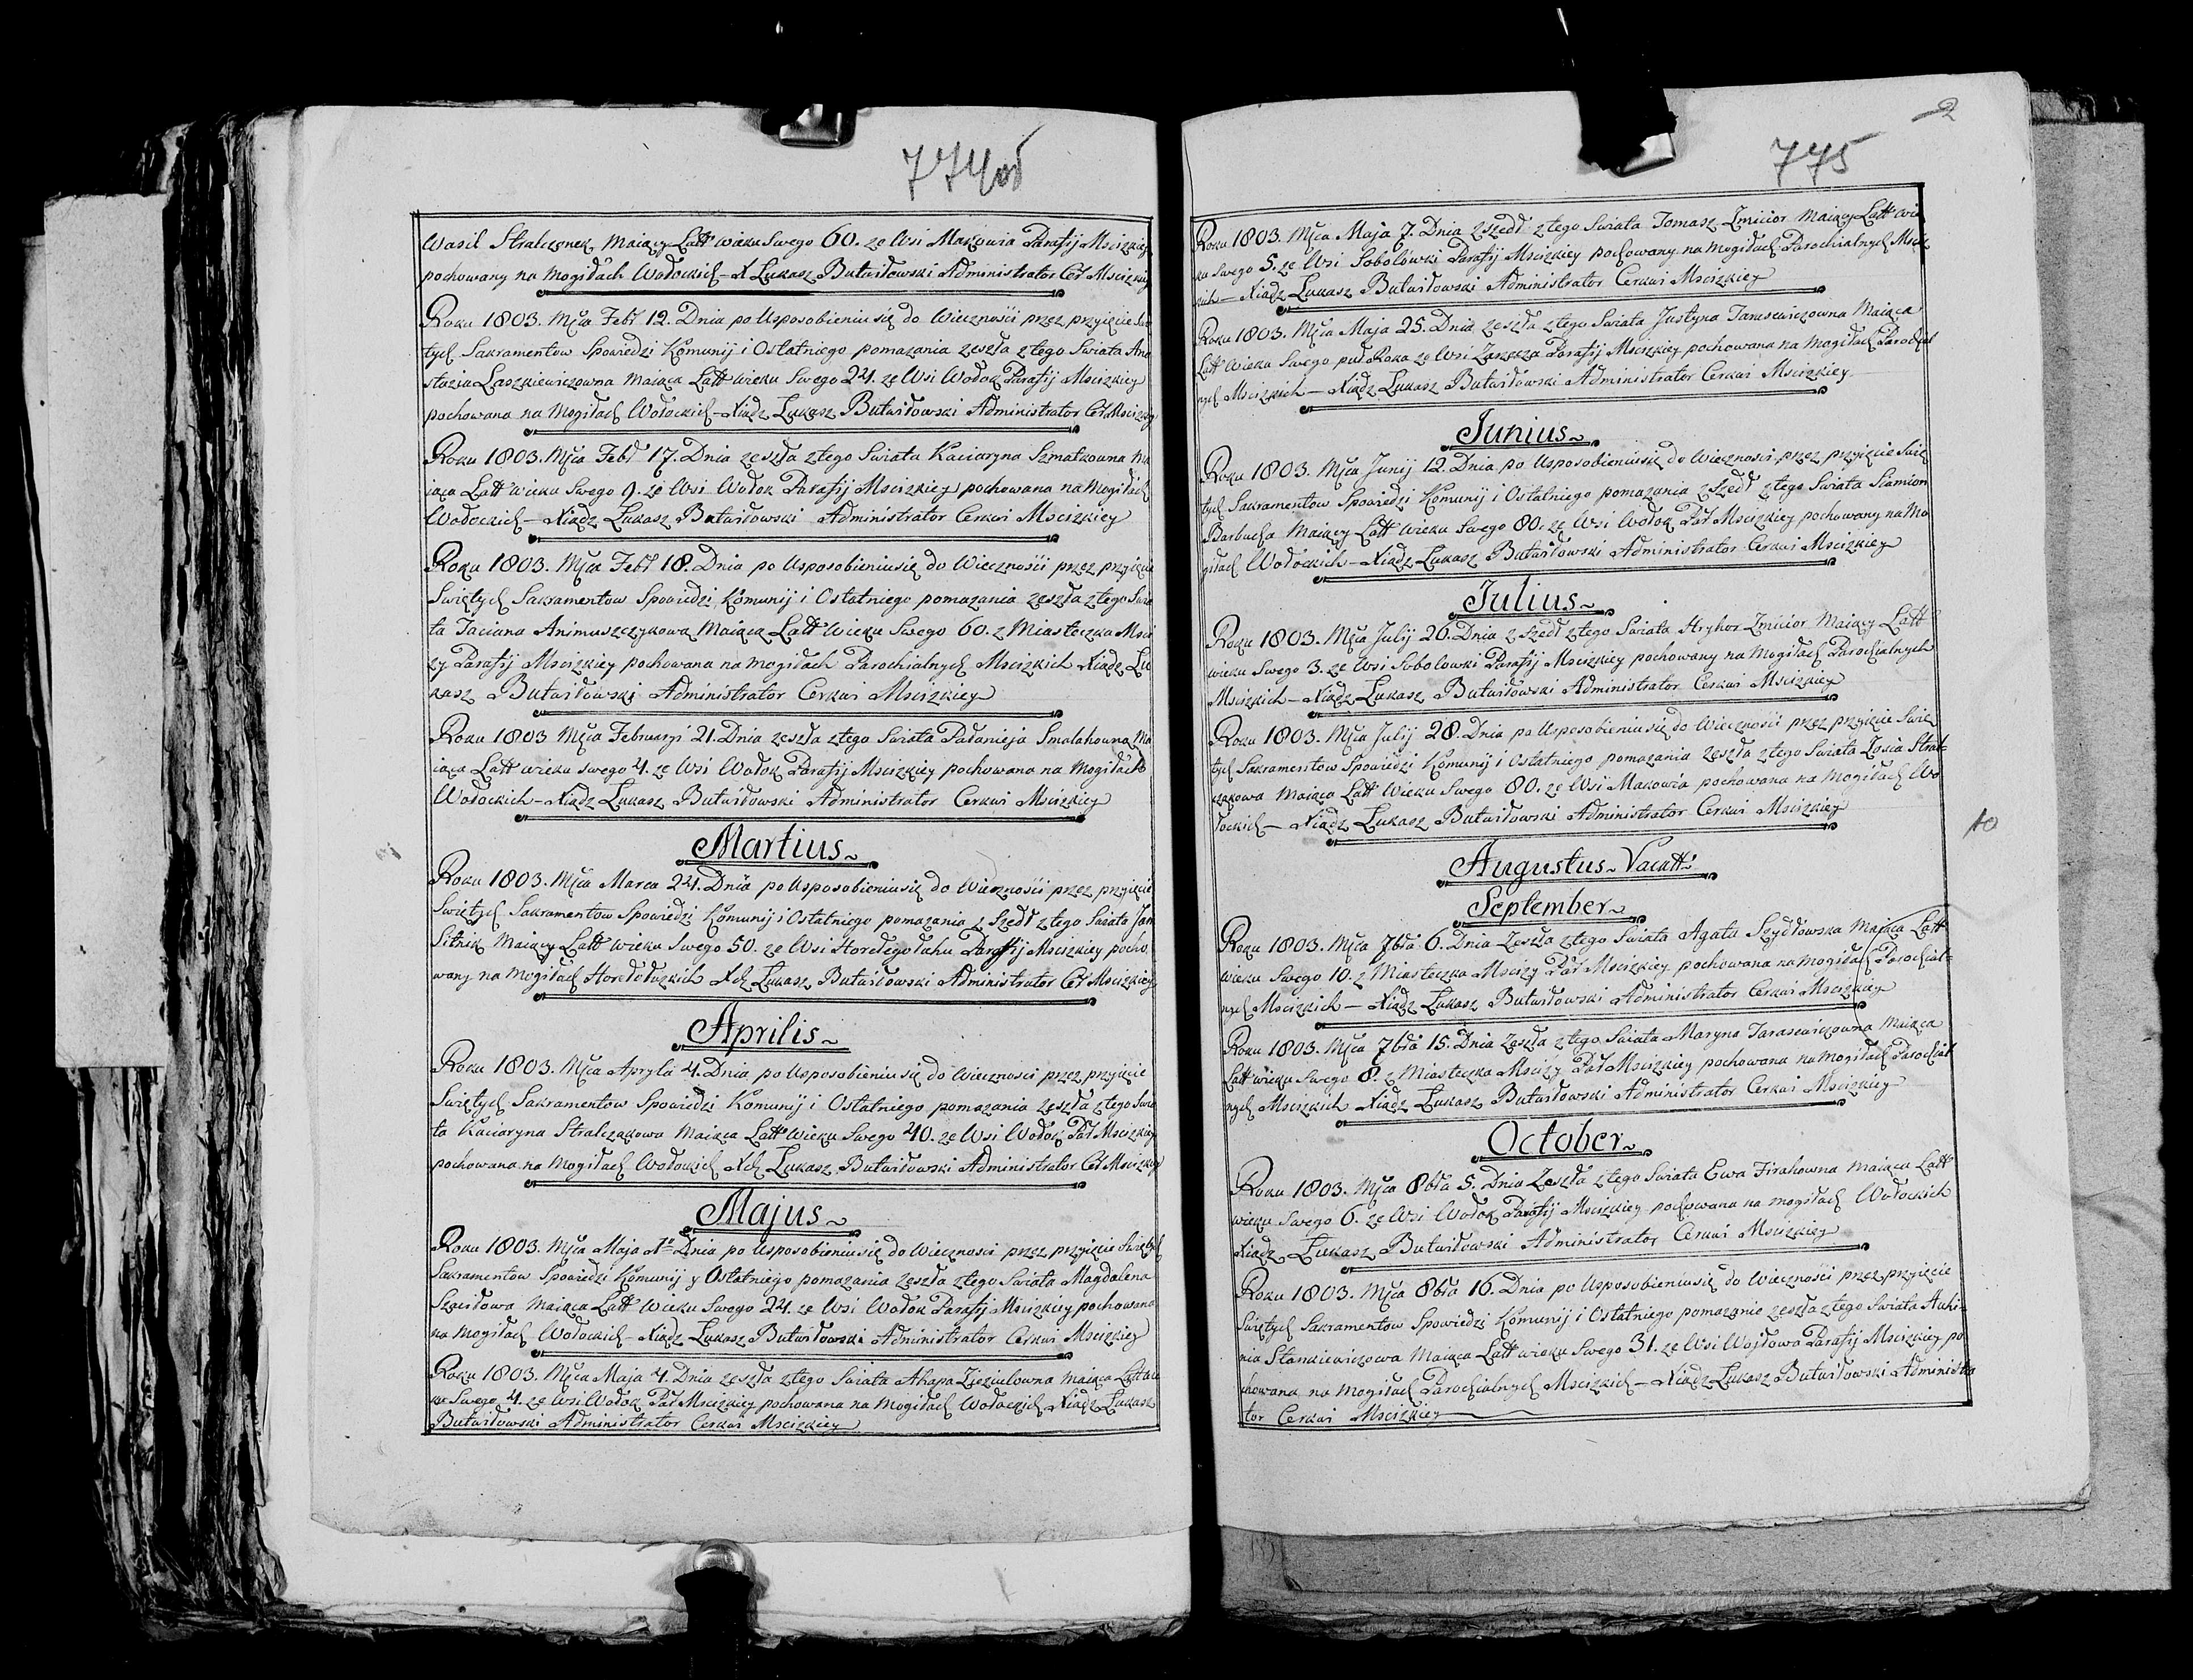 774об
Wasil Stralczonek Maiący Latt wieku Swego 60. ze Wsi Makowia Parafij Mscizkiey
pochowany na Mogiłach Wołockich – X Łukasz Butwiłowski Administrator Cer Mscizkiey
Roku 1803. Mſca Febr 12. Dnia po Usposobieniu się do Wieczności przez przyięcie Świę
tych Sakramentow Spowiedzi Komunij i Ostatniego pomazania zeszła z tego Swiata Ana
stazia Laszkiewiczowna Maiąca Latt wieku Swego 24. ze Wsi Wołok Parafij Mscizkiey
pochowana na Mogiłach Wołockich – Xiądz Łukasz Butwiłowski Administrator Cer Mscizkiey
Roku 1803. Mſca Febr 17. Dnia zeszła z tego Swiata Kaciaryna Szmatkowna Ma
iąca Latt wieku Swego 9. ze Wsi Wołok Parafij Mscizkiey pochowana na Mogiłach
Wołockich – Xiądz Łukasz Butwiłowski Administrator Cerkwi Mscizkiey
Roku 1803. Mſca Febr 18. Dnia po Usposobieniu się do Wieczności przez przyięcie
Świętych Sakramentow Spowiedzi Komunij i Ostatniego pomazania zeszła z tego Swia
ta Taciana Animuszczykowa Maiąca Latt wieku Swego 60. z Miasteczka Msci
zy Parafij Mscizkiey pochowana na mogiłach Parochialnych Mscizkich Xiądz Łu
kasz Butwiłowski Administrator Cerkwi Mscizkiey
Roku 1803 Mſca Februarji 21. Dnia zeszła z tego Swiata Pałanieja Smalahowna Ma
iąca Latt wieku swego 4. ze Wsi Wołok Parafij Mscizkiey pochowana na Mogiłach
Wołockich – Xiądz Łukasz Butwiłowski Administrator Cerkwi Mscizkiey
Martius
Roku 1803. Mſca Marca 24. Dnia po Usposobieniu się do Wieczności przez przyięcie
Świętych Sakramentow Spowiedzi Komunij i Ostatniego pomazania z Szedł z tego Swiata Jan
Sitnik Maiący Latt wieku Swego 50. ze Wsi Horełegołuhu Parafij Mscizkiey pocho
wany na Mogiłach Horełołuzkich Xdz Łukasz Butwiłowski Administrator Cer Mscizkiey
Aprilis
Roku 1803. Mſca Apryla 4. Dnia po Usposobieniu się do Wieczności przez przyięcie
Świętych Sakramentow Spowiedzi Komunij i Ostatniego pomazania zeszła z tego Swia
ta Kaciaryna Stralczakowa Maiąca Latt wieku Swego 40. ze Wsi Wołok Par Mscizkiey
pochowana na Mogiłach Wołockich Xdz Łukasz Butwiłowski Administrator Cer Mscizkiey
Majus
Roku 1803. Mſca Maja 1º Dnia po Usposobieniu się do Wieczności przez przyięcie Świętych
Sakramentow Spowiedzi Komunij y Ostatniego pomazania zeszła z tego Swiata Magdalena
Maiąca Latt wieku Swego 24. ze Wsi Wołok Parafij Mscizkiey pochowana
na Mogiłach Wołockich – Xiądz Łukasz Butwiłowski Administrator Cerkwi Mscizkiey
Roku 1803. Mſca Maja 4. Dnia zeszła z tego Swiata Ahapa Ziezulowna Maiąca Latt wie
ku Swego 4. ze Wsi Wołok Par Mscizkiey pochowana na Mogiłach Wołockich Xiądz Łukasz
Butwiłowski Administrator Cerkwi Mscizkiey
2
775
Roku 1803. Mſca Maja 7. Dnia z szedł z tego Swiata Tomasz Zmicior Maiący Latt wie
ku Swego 5. ze Wsi Sobolówki Parafij Mscizkiey pochowany na mogiłach Parochialnych Msciz
kich – Xiądz Łukasz Butwiłowski Administrator Cerkwi Mscizkiey
Roku 1803. Mſca Maja 25. Dnia zeszła z tego Swiata Justyna Tarasewiczowna Maiąca
Latt wieku Swego puł Roka ze Wsi Zarecza Parafij Mscizkiey pochowana na mogiłach Parochial
nych Mscizkich – Xiądz Łukasz Butwiłowski Administrator Cerkwi Mscizkiey
Junius
Roku 1803. Mſca Junij 12. Dnia po Usposobieniu się do Wieczności przez przyięcie Świę
tych Sakramentow Spowiedzi Komunij i Ostatniego pomazania z Szedł z tego Swiata Siamion
Barbucha Maiący Latt wieku Swego 80. ze Wsi Wołok Par Mscizkiey pochowany na Mo
giłach Wołockich – Xiądz Łukasz Butwiłowski Administrator Cerkwi Mscizkiey
Julius
Roku 1803. Mſca Julij 26. Dnia z szedł z tego Swiata Hryhor Zmicior Maiący Latt
wieku Swego 3. ze Wsi Sobolowki Parafij Mscizkiey pochowany na Mogiłach Parochialnych
Mscizkich – Xiądz Łukasz Butwiłowski Administrator Cerkwi Mscizkiey
Roku 1803. Mſca Julij 28. Dnia po Usposobieniu się do Wieczności przez przyięcie Świę
tych Sakramentow Spowiedzi Komunij i Ostatniego pomazania zeszła z tego Swiata Zosia Stral=
czakowa Maiąca Latt Wieku Swego 80. ze Wsi Makowia pochowana na Mogiłach Wo
łockich – Xiądz Łukasz Butwiłowski Administrator Cerkwi Mscizkiey
10
Augustus Vacatt:
September
Roku 1803. Mſca 7bra 6. Dnia Zeszła z tego Swiata Agata Szydłowska Maiąca Latt
wieku Swego 10. z Miasteczka Mscizy Par Mscizkiey pochowana na mogiłach Parochial=
nych Mscizkich – Xiądz Łukasz Butwiłowski Administrator Cerkwi Mscizkiey
Roku 1803. Mſca 7bra 15. Dnia Zeszła z tego Swiata Maryna Tarasewiczowna Maiąca
Latt wieku Swego 8. z Miasteczka Mscizy Par Mscizkiey pochowana na Mogiłach Parochial
nych Mscizkich Xiądz Łukasz Butwiłowski Administrator Cerkwi Mscizkiey
October
Roku 1803. Mſca 8bra 5. Dnia Zeszła z tego Swiata Ewa Firahowna Maiąca Latt
wieku Swego 6. ze Wsi Wołok Parafij Mscizkiey pochowana na mogiłach Wołockich
Xiądz Łukasz Butwiłowski Administrator Cerkwi Mscizkiey
Roku 1803. Mſca 8bra 16. Dnia po Usposobieniu się do Wieczności przez przyięcie
Świętych Sakramentow Spowiedzi Komunij i Ostatniego pomazanie zeszła z tego Swiata Auhi=
nia Stankiewiczowa Maiąca Latt wieku Swego 31. ze Wsi Wojłowa Parafij Mscizkiey po
chowana na Mogiłach Parochialnych Mscizkich – Xiądz Łukasz Butwiłowski Administra
tor Cerkwi Mscizkiey